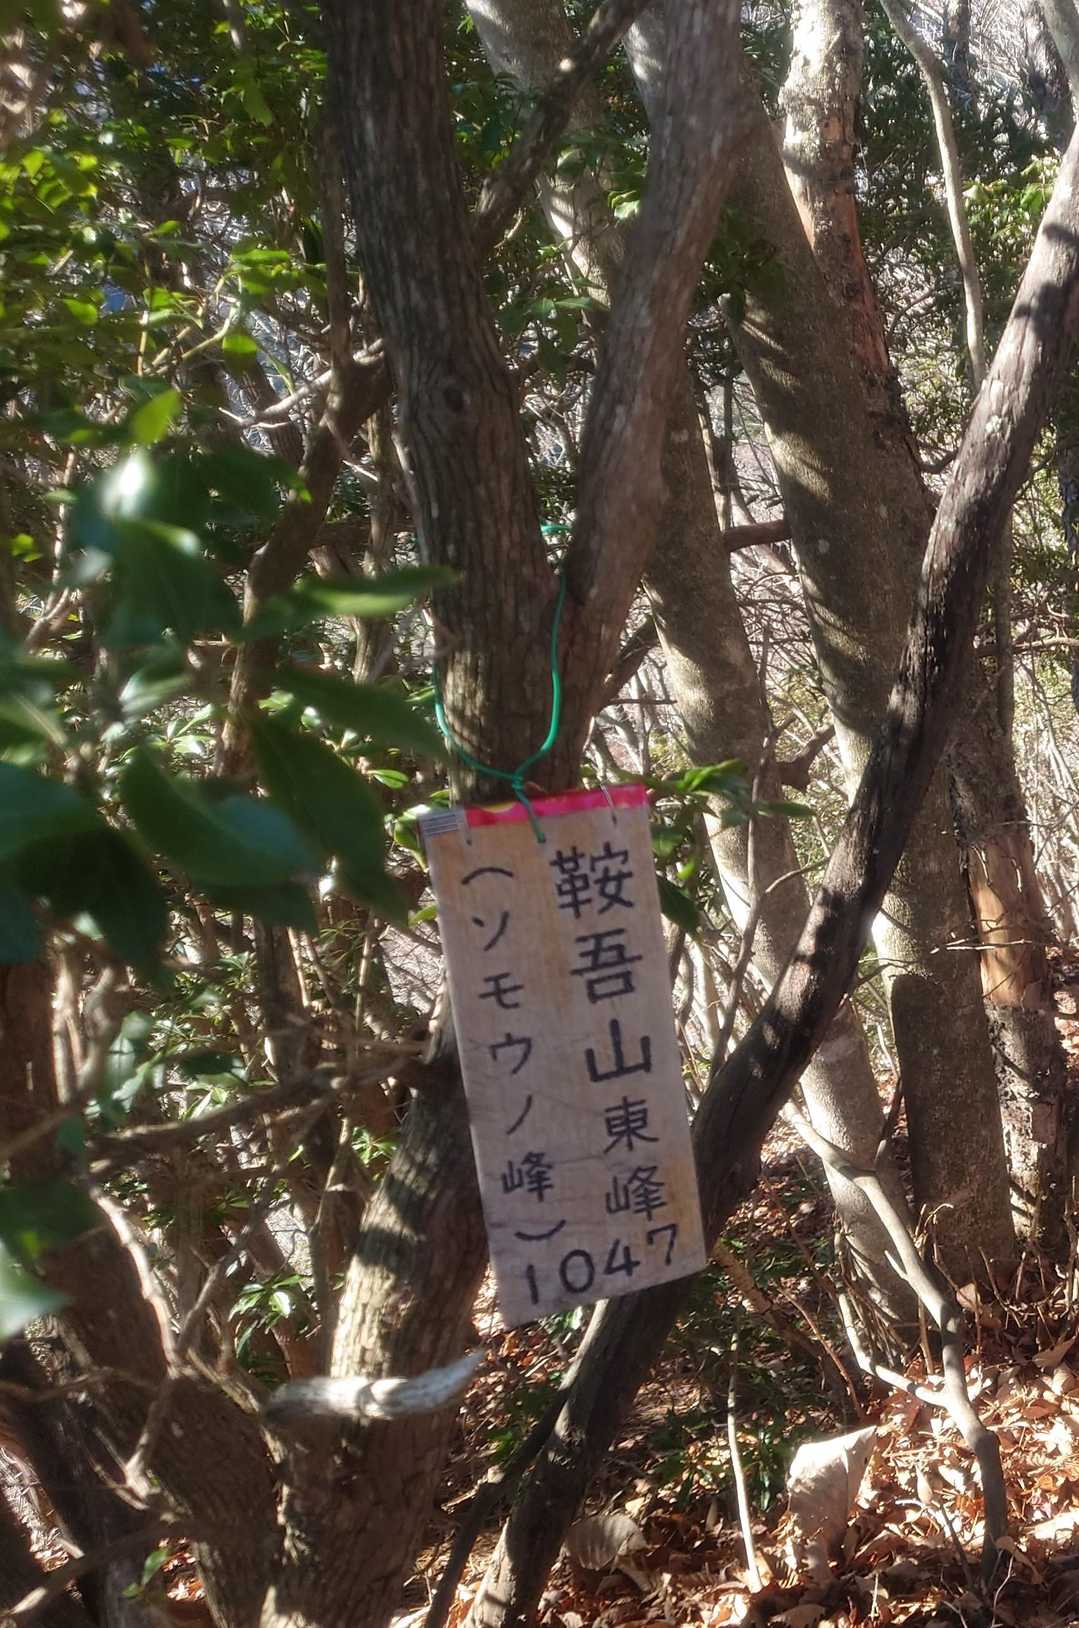 鞍吾山東峰
（ソモウノ峰）
1047